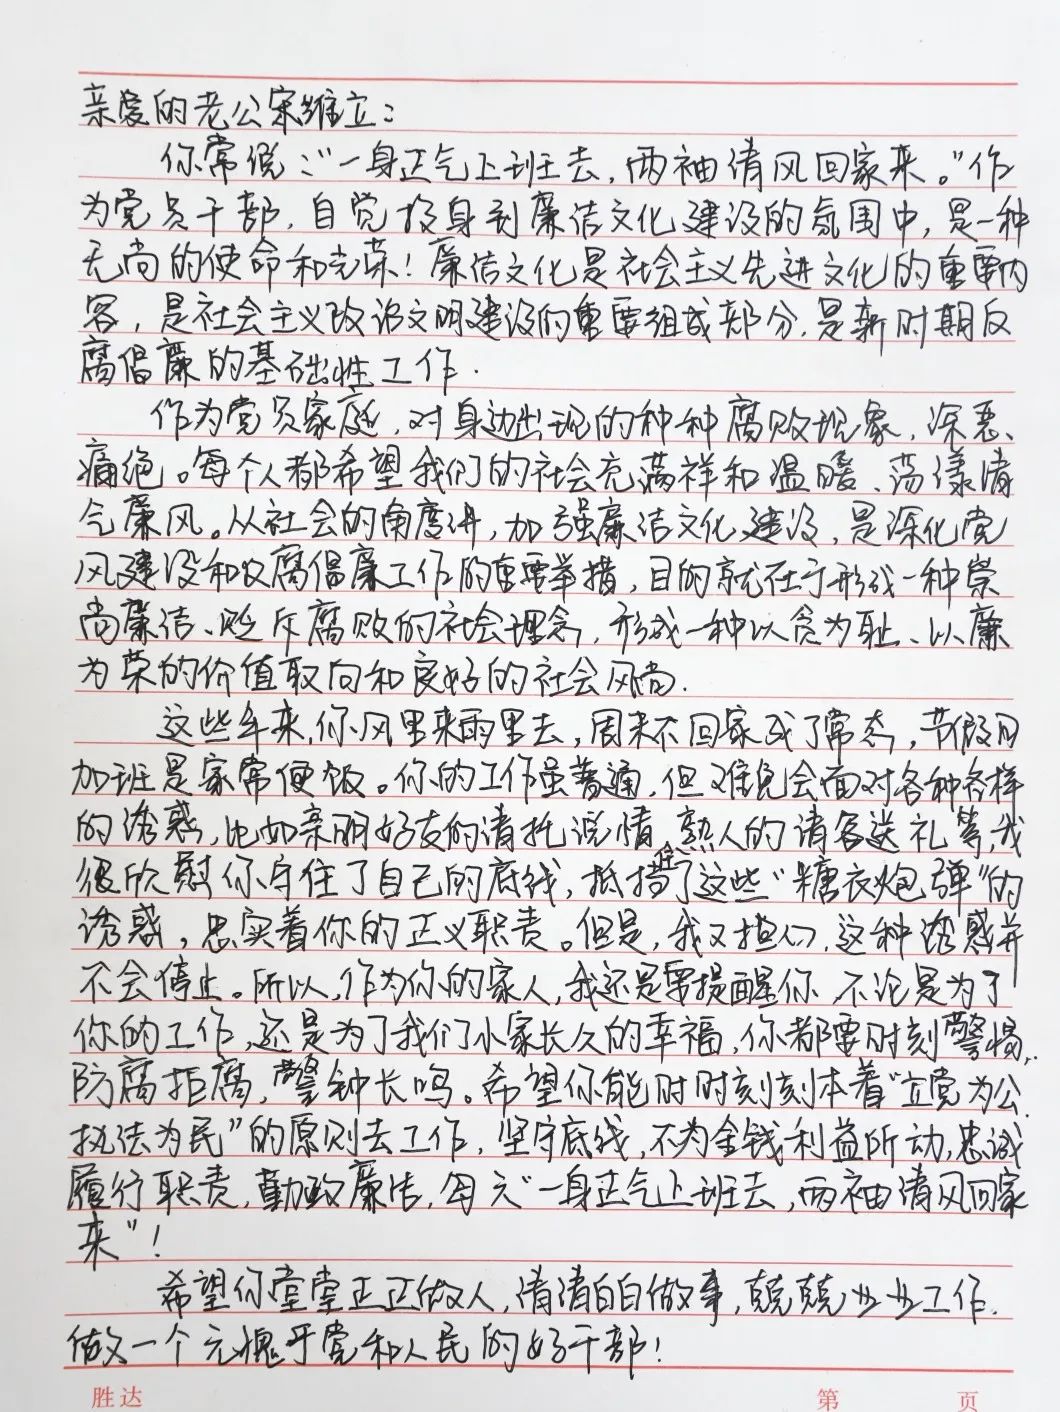 亲爱的老公宋维立：
你常说："一身正气上班去，两袖清风回家来。"作
为党员干部，自觉投身到廉洁文化建设的氛围中，是一种
无尚的使命和光荣！廉洁文化是社会主义先进文化的重要内
容，是社会主义政治文明建设的重要组成部分，是新时期反
腐倡廉的基础性工作．
作为党员家庭，对身边出现的种种腐败现象，深恶
痛绝。每个人都希望我们的社会充满祥和温暖、荡漾清
气廉风。从社会的角度讲，加强廉洁文化建设，是深化党
风建设和反腐倡廉工作的重要举措，目的就在于形成一种崇
尚廉洁、贬斥腐败的社会理念，形成一种以贪为耻、以廉
为荣的价值取向和良好的社会风尚．
这些年来，你风里来雨里去，周末不回家成了常态，节假日
加班是家常便饭。你的工作虽普通，但难免会面对各种各样
的诱惑，比如亲朋好友的请托说情，熟人的请客送礼等，我
很欣慰你守住了自己的底线，抵挡住了这些"糖衣炮弹"的
诱惑，忠实着你的正义职责。但是，我又担心，这种诱惑并
不会停止。所以，作为你的家人，我还是要提醒你，不论是为了
你的工作，还是为了我们小家长久的幸福，你都要时刻警惕，
防腐拒腐，警钟长鸣。希望你能时时刻刻本着"立党为公，
执法为民"的原则去工作，坚守底线，不为金钱利益所动，忠诚
履行职责，勤政廉洁，每天"一身正气上班去，两袖清风回家
来"！
希望你堂堂正正做人，清清白白做事，兢兢业业工作．
做一个无愧于党和人民的好干部！
胜达 第 页